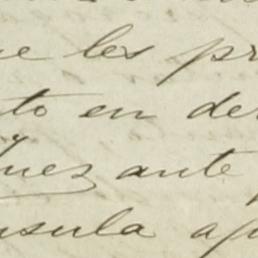 ue les pr
to en der
Juez ante
nsula ap